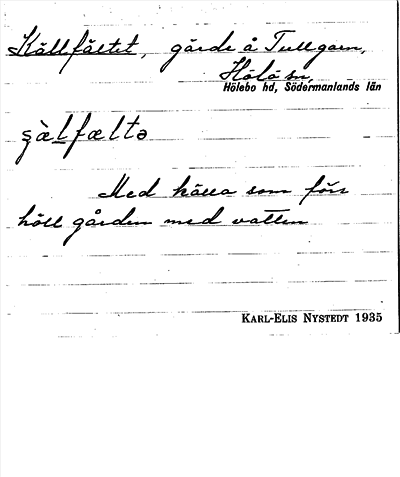 Källfältet, gärde å Tullgarn,
Hölö sn,
Hölebo hd, Södermanlands län
Med källa som förr
höll gården med vatten
KARL-ELIS NYSTEDT 1935